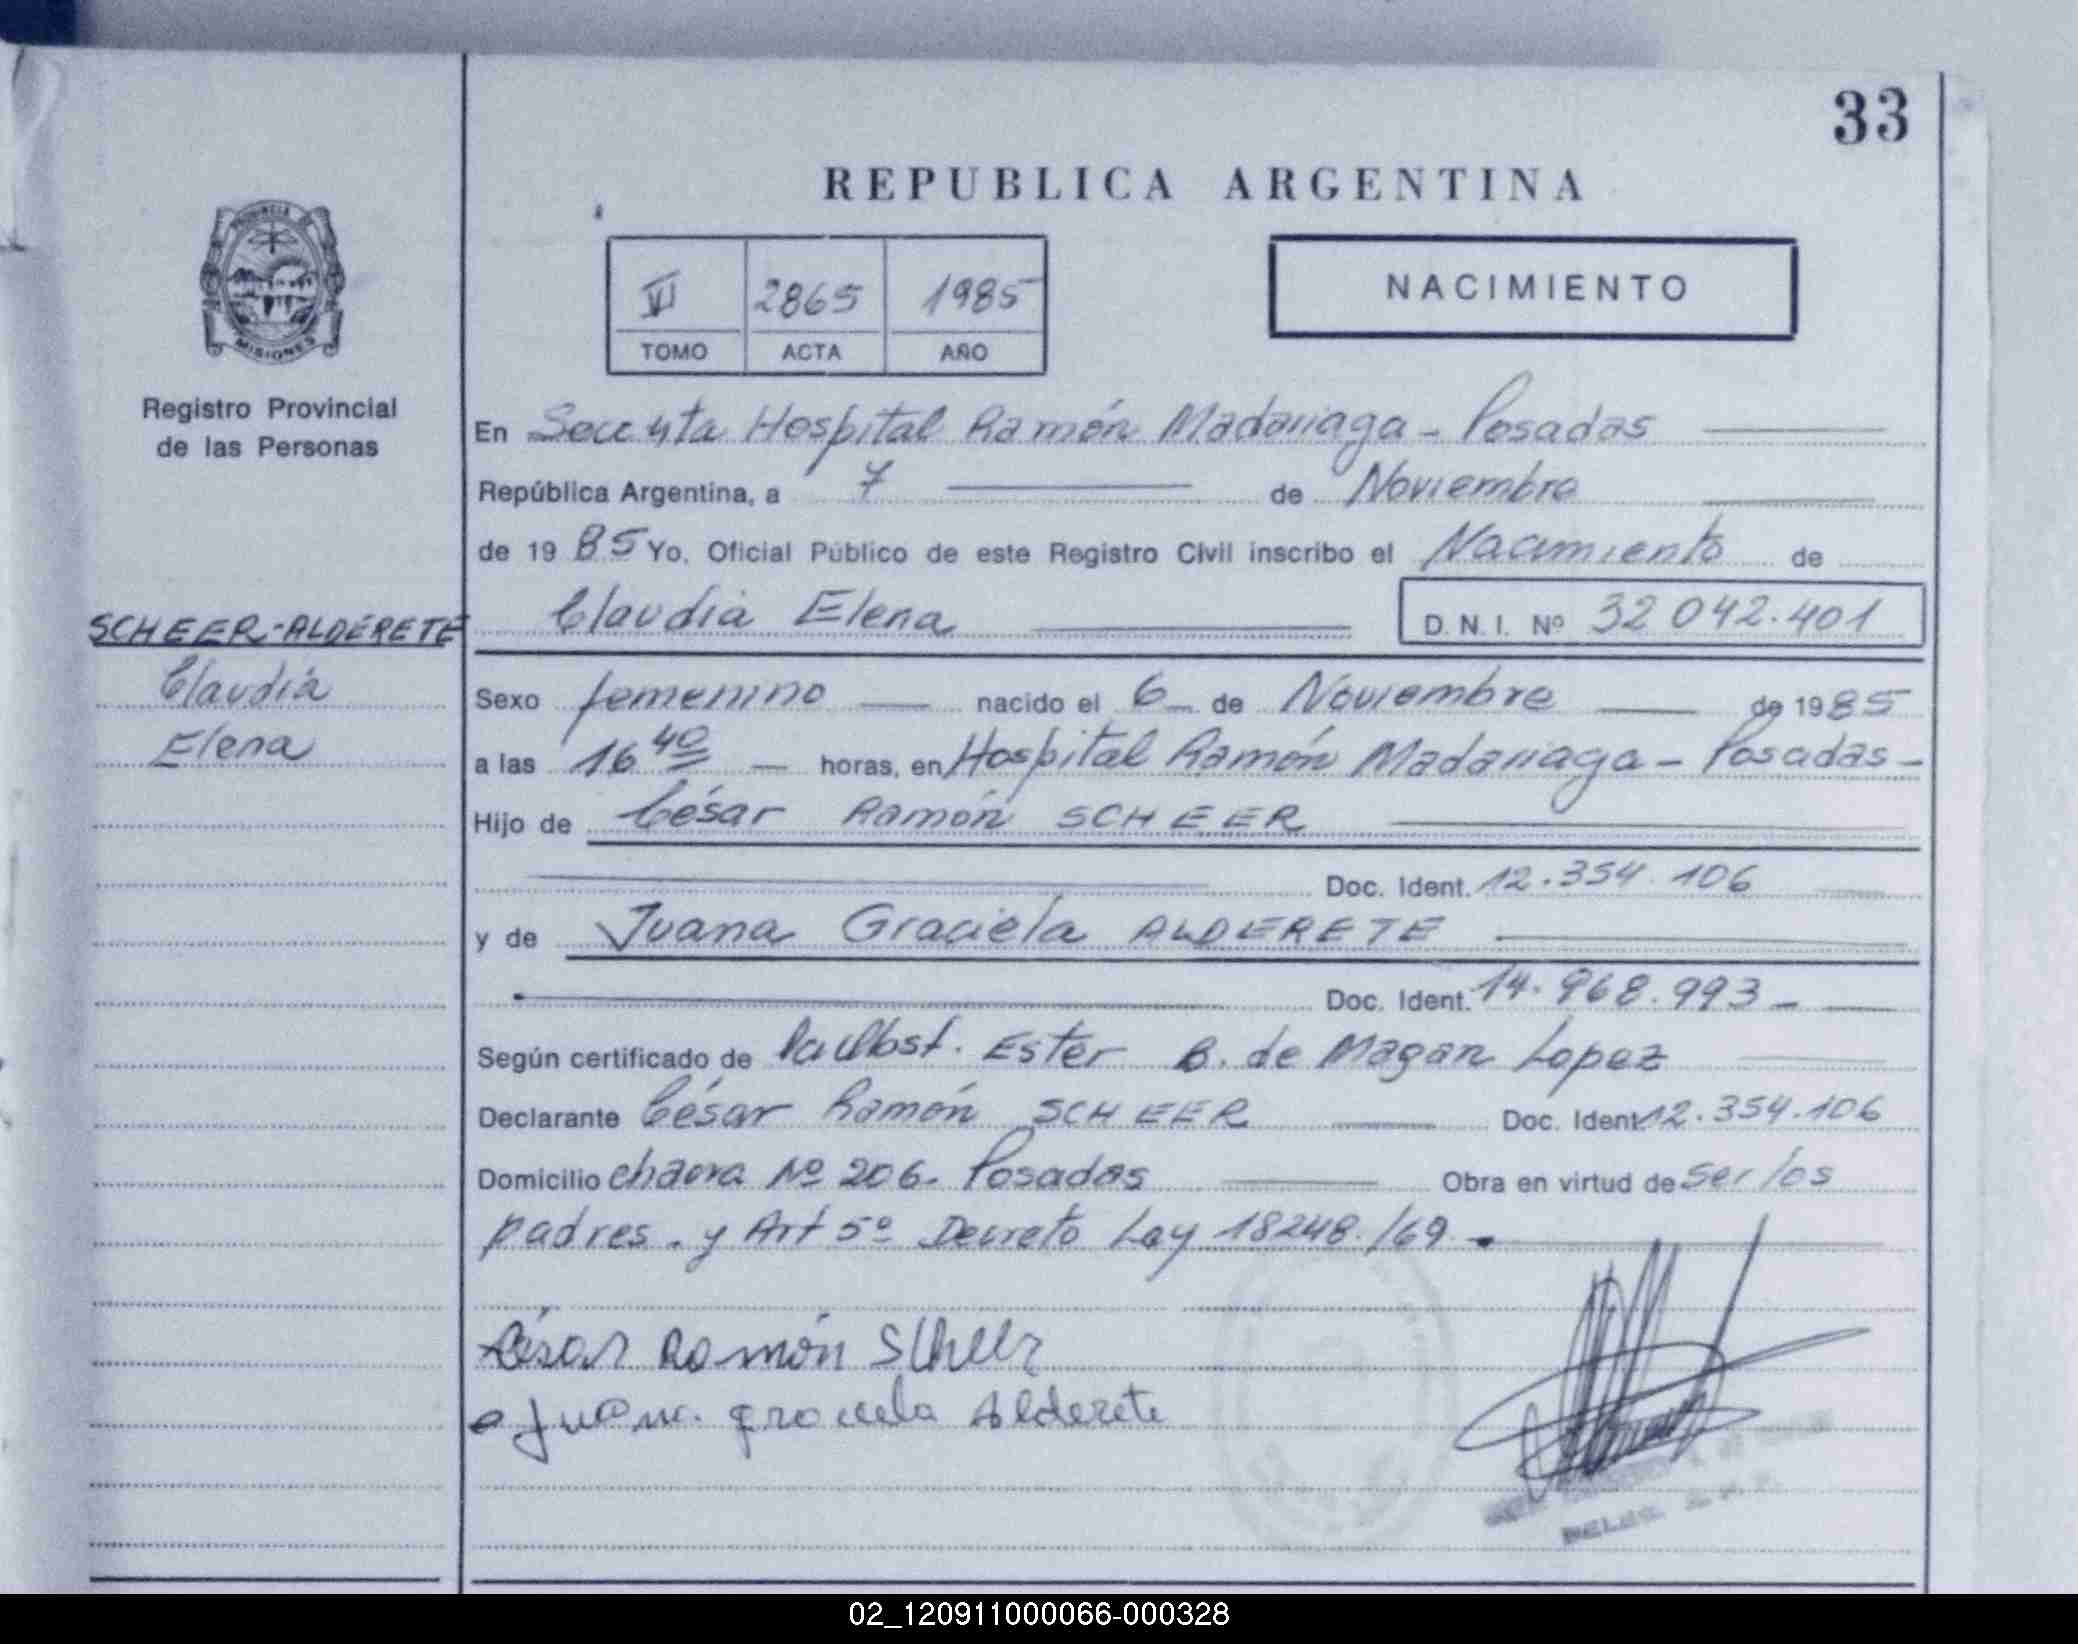 33
REPUBLICA ARGENTINA
PROVINCIA DE
MISIONES
VI 2865 1985
TOMO ACTA AÑO
NACIMIENTO
Registro Provincial
de las Personas
En Secc 4ta Hospital Ramón Madariaga - Posadas
República Argentina, a 7 de Noviembre
de 19 85 Yo, Oficial Público de este Registro Civil inscribo el Nacimiento de
Claudia Elena D. N. I. Nº 32 042.401
SCHEER-ALDERETE
Claudia
Elena
Sexo femenino nacido el 6 de Noviembre de 19 85
a las 16 40 horas, en Hospital Ramón Madariaga - Posadas -
Hijo de César Ramón SCHEER
Doc. Ident. 12.354.106
y de Juana Graciela ALDERETE
Doc. Ident. 14.968.993 -
Según certificado de Ester B. de Magan Lopez
Declarante César Ramón SCHEER Doc. Ident 12.354.106
Domicilio chacra Nº 206. Posadas Obra en virtud de ser los
padres. y Art 5º Decreto Ley 18248./69.
César Ramón Scheer
Juana graciela Alderete
02_120911000066-000328